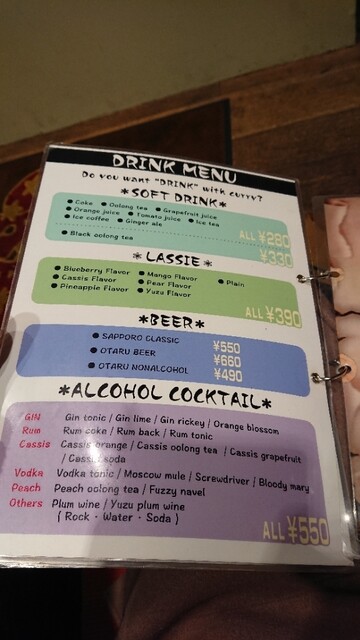 DRINK MENU
Do you want "DRINK" with curry?
*SOFT DRINK*
● Coke ● Oolong tea ● Grapefruit juice
● Orange juice ● Tomato juice ● Ice tea
● Ice coffee ● Ginger ale
ALL ¥280
● Black oolong tea
¥330
*LASSIE*
● Blueberry Flavor ● Mango Flavor ● Plain
● Cassis Flavor ● Pear Flavor
● Pineapple Flavor ● Yuzu Flavor
ALL ¥390
*BEER*
● SAPPORO CLASSIC ¥550
● OTARU BEER ¥660
● OTARU NONALCOHOL ¥490
*ALCOHOL COCKTAIL*
GIN Gin tonic / Gin lime / Gin rickey / Orange blossom
Rum Rum coke / Rum back / Rum tonic
Cassis Cassis orange / Cassis oolong tea / Cassis grapefruit
/ Cassis soda
Vodka Vodka tonic / Moscow mule / Screwdriver / Bloody mary
Peach Peach oolong tea / Fuzzy navel
Others Plum wine / Yuzu plum wine
( Rock · Water · Soda )
ALL ¥550